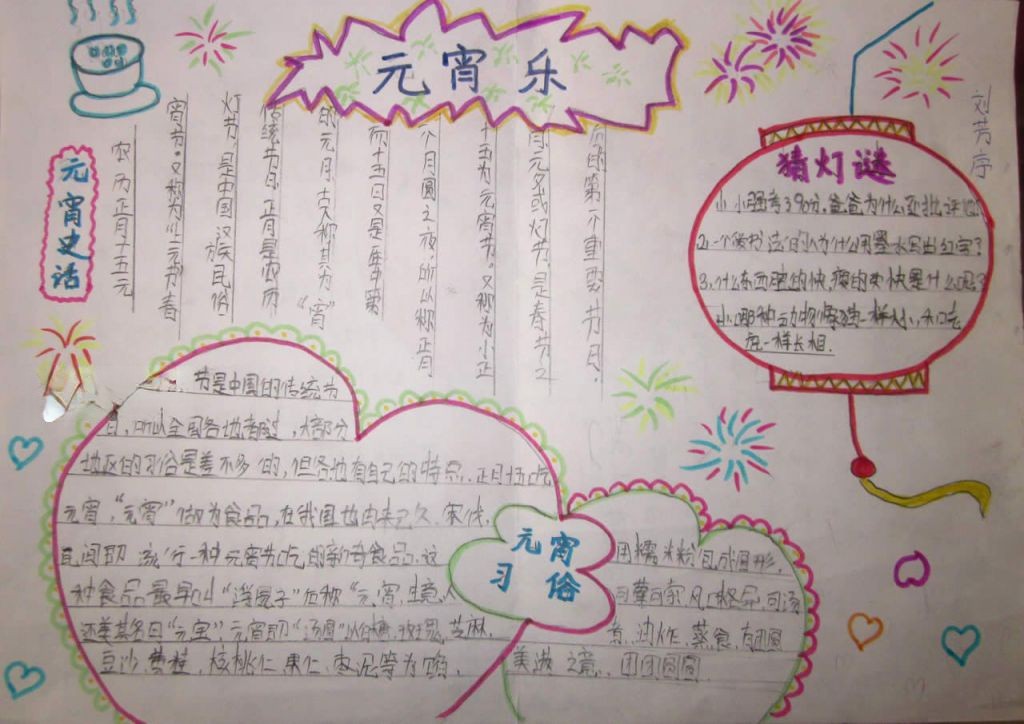 元宵乐
刘芳序
元宵史话
农历正月十五元
宵节,又称为
节,春
灯节,是中国汉族民俗
传统节日。正月是农历
的元月,古人称其为“宵”
而十五日又是一年中第
一个月圆之夜,所以称正月
十五为元宵节。又称为小正
月、元夕或灯节,是春节之
后的第一个重要节日。
猜灯谜
小小强考390分,爸爸为什么还批评他?
2、一个修书法的人为什么用墨水写出红字?
3、什么东西
的快,瘦的更快是什么呢?
小
哪种动物
一样大小,和
在一样长相.
节是中国的传统节
日,所以全国各地都过,大部分
地区的习俗是差不多的,但各地有自己的特点.正月十五吃
元宵,“元宵”做为食品,在我国也由来已久.宋代,
民间即流行一种元宵节吃的新奇食品.这
种食品最早叫“浮圆子”后称“元宵,生意人
还美其名曰“元宝”.元宵即“汤圆”以白糖,玫瑰,芝麻,
豆沙,黄桂,核桃仁,果仁,枣泥等为馅,
元宵
习俗
用糯米粉包成圆形,
可荤可素,风味各异,可汤
煮,油炸,蒸食,有团圆
美满之意.团团圆圆